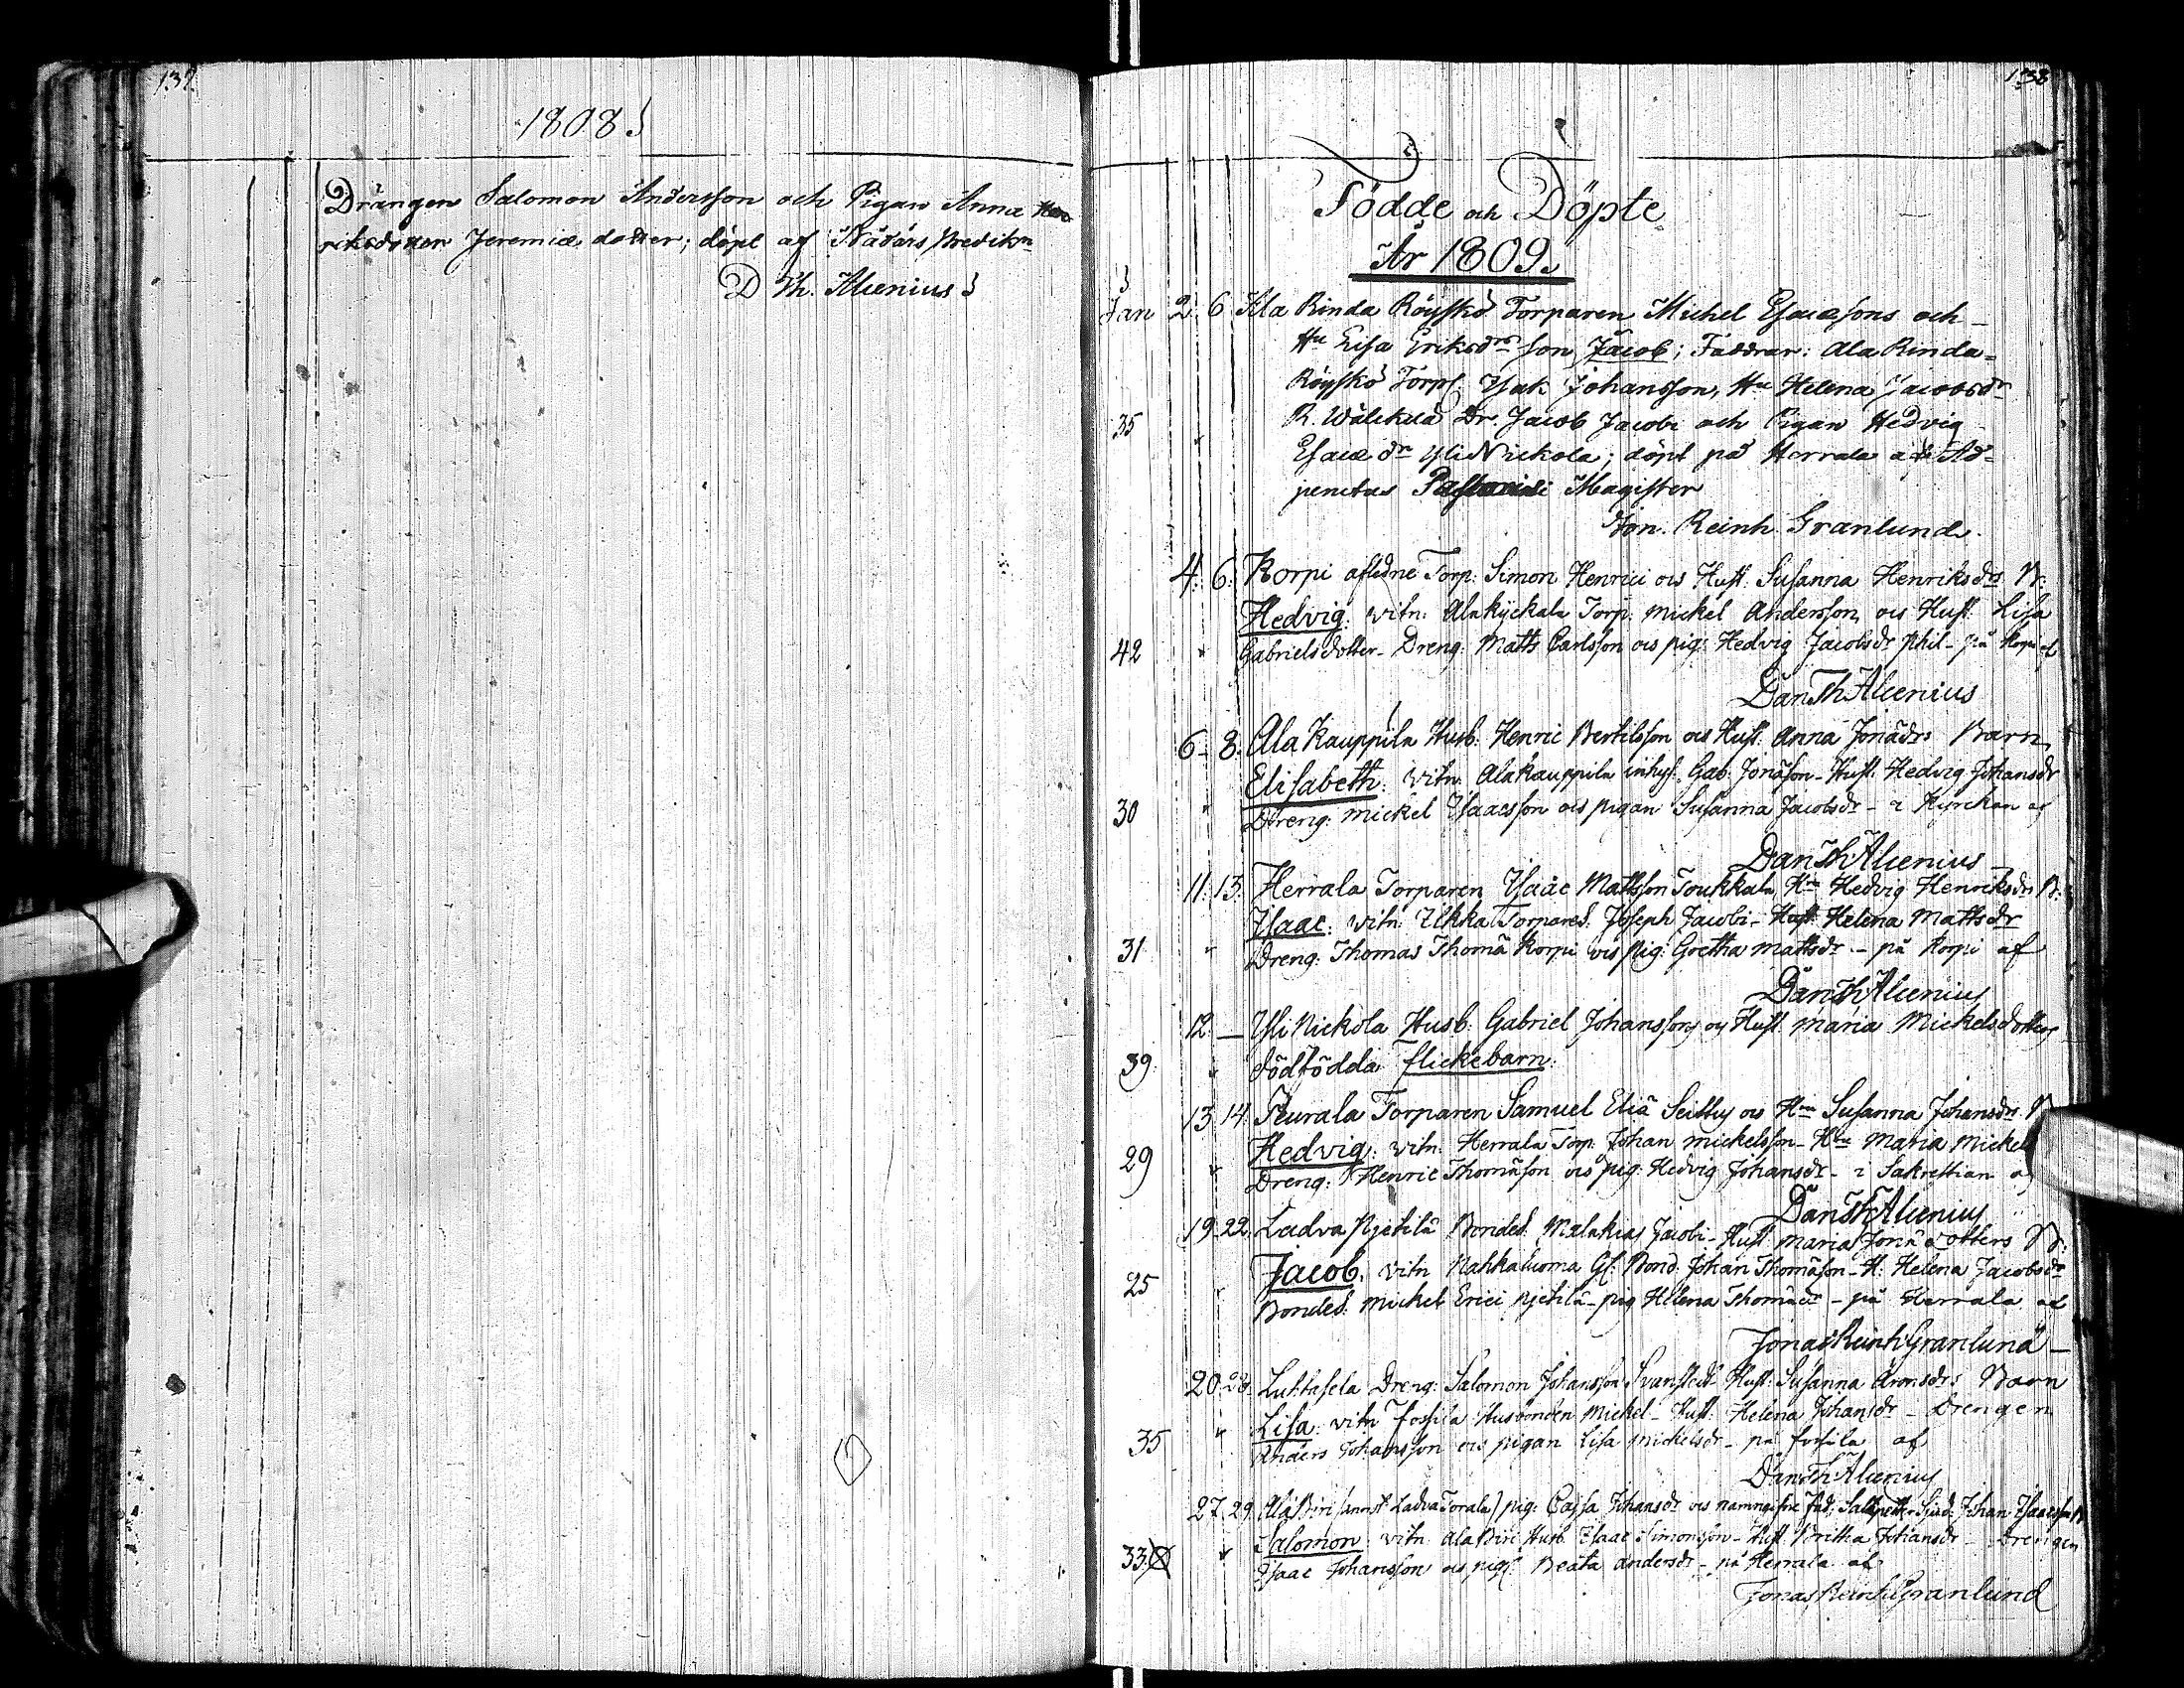 137.
1808.
Drängen Salomon Andersson och Pigan Anna Hen
riksdotter Jeremiæ dotter; döpt af Nådårs Predikn
D Th. Alcenius
138
Födde och Döpte
År 1809.
Jan 2. 6 Ala Rinda Röyskö Torparen Michel Esaiæsons och
Hu Lisa Eriksdrs son Jacob; Faddrar: Ala Rinda
Röyskö Torp. Isak Johansson, Hu Helena Jacobsdr
35 R. Wälikulä Dr. Jacob Jacobi och Pigan Hedvig
Esaiæ dr Yli Nickola; döpt på Herrala af Ad-
junctus Magister
Jon. Reinh. Granlund.
4. 6. Korpi afledne Torp: Simon Henrici ois Hust. Susanna Henriksdrs B:
Hedvig: vitn: Alakyckala Torp: Mickel Andersson ois Hust. Lisa
42 Gabrielsdotter - Dreng: Matts Carlsson ois pig: Hedvig Jacobsdr Phil - på Korpi af
Dan Th Alcenius
6 - 8. Ala Kauppila Husb: Henric Bertilsson ois Hust. Anna Jonædrs Barn
Elisabeth: vitn: Alakauppila inhys. Gab. Jonæson - Hust. Hedvig Johansdr
30 Dreng: Mickel Isaacsson ois pigan Susanna Jacobsdr - i Kyrckan af
Dan Th Alcenius
11. 13. Herrala Torparen Isaac Mattsson Toukkala Hu Hedvig Henriksdrs B:
Isaac: vitn: Ulkka Torpared. Joseph Jacobi - Hust. Helena Mattsdr
31 Dreng: Thomas Thomæ Korpi ois pig: Gretha Mattsdr - på Korpi af
Dan Th Alcenius
12 — Yli Nickola Husb: Gabriel Johanssons och Hust. Maria Mickelsdotters
39 dödfödda flickebarn:
13 14. Peurala Torparen Samuel Eliæ Seitlus ois Hu Susanna Johansdrs B
Hedvig: vitn: Herrala Torp: Johan Mickelsson - Hu Maria Mickels
29 Dreng: Henric Thomæson ois pig: Hedvig Johansdr - i Sakrestian af
Dan Th Alcenius
19. 22. Ladva Pjetilä Bonded. Malakias Jacobi - Hust. Maria Jonædotters B:
Jacob. vitn Nahkaluoma Gl. Bond. Johan Thomæson - H: Helena Jacobsdr
25 Bonded. Mickel Erici Pjetilä - pig Helena Thomædr - på Herrala af
Jonas Reinh. Granlund
20. 23. Luhtasela Dreng: Salomon Johansson Svanstedt Hust. Susanna Aronsdrs Barn
Lisa: vitn Forsila Husbonden Mickel - Hust. Helena Johansdr - Drengen
35 Anders Johansson ois pigan Lisa Mickelsdr - på Forsila af
Dan Th Alcenius
27. 29. Ala Biri (annst. Ladva Torala) pig: Cajsa Johansdr ois namngifne Fad: Johan Isaacsson B
Salomon: vitn: Ala Biri Husb. Isaac Simonsson - Hust Britha Johansdr - Drengen
33. Isaac Johansson ois pig: Beata Andersdr - på Herrala af
Jonas Reinh Granlund